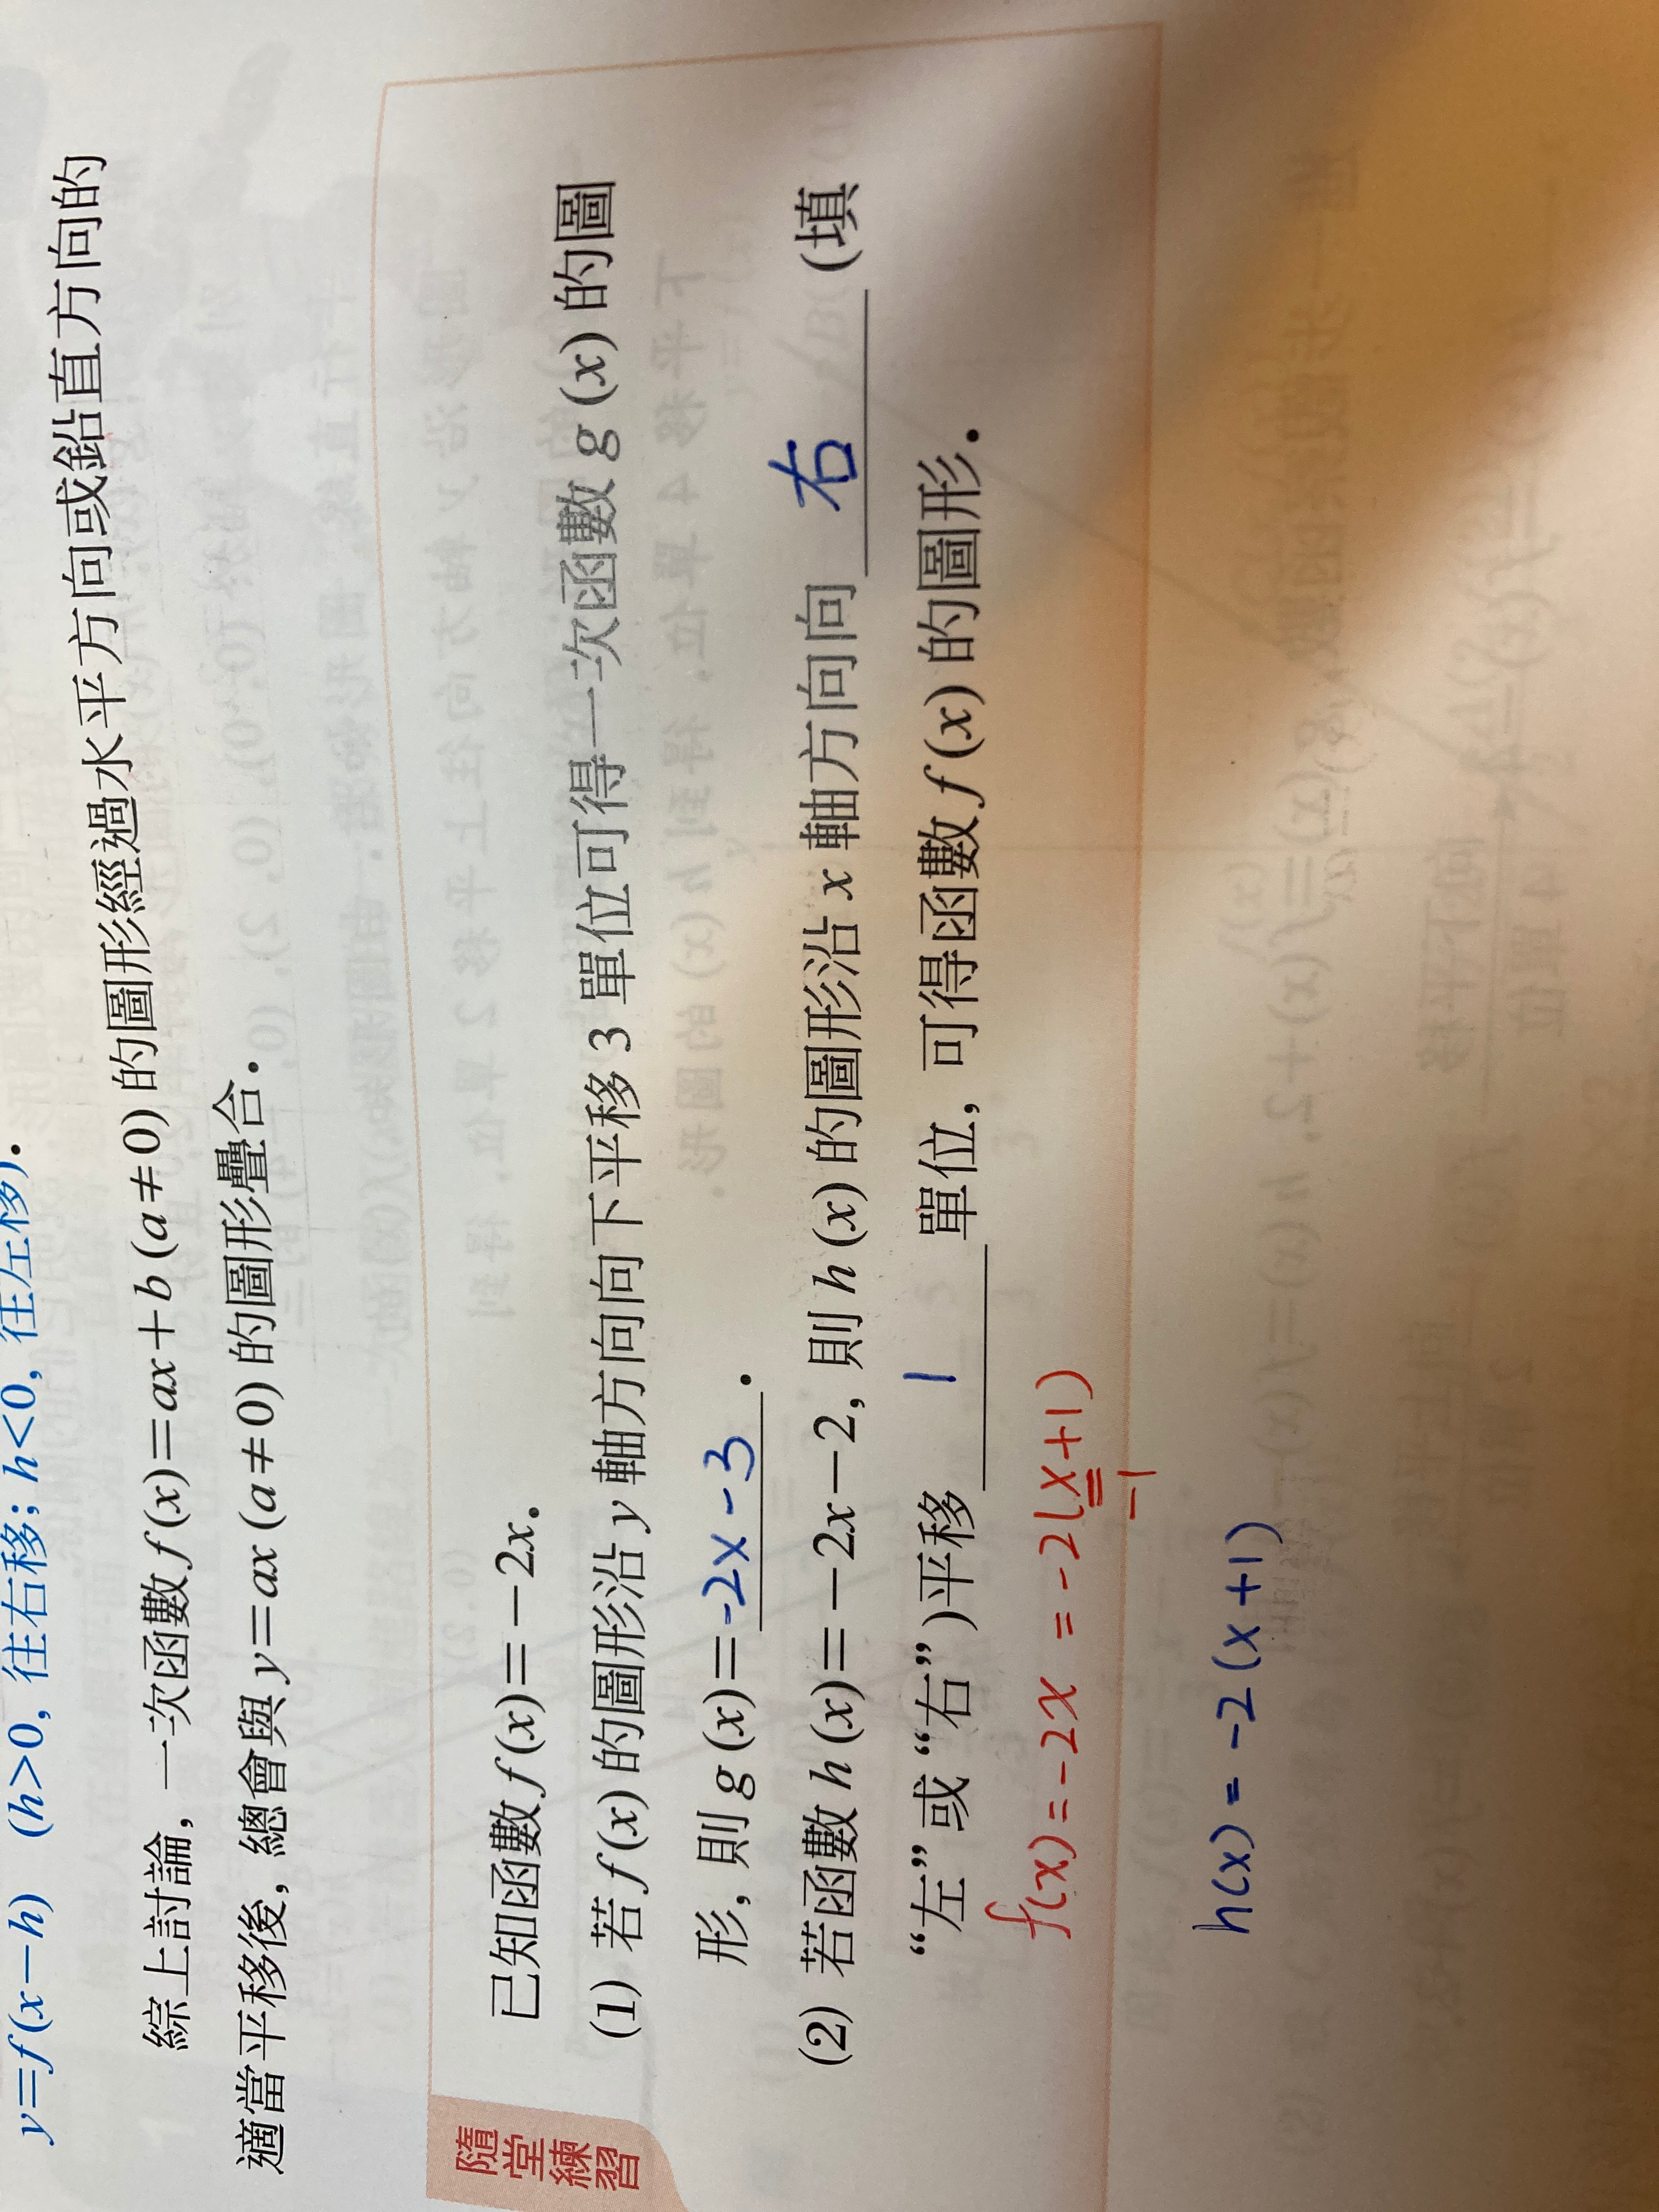 y=f(x−h) (h>0, 往右移; h<0, 往左移).
綜上討論, 一次函數f(x)=ax+b(a≠0)的圖形經過水平方向或鉛直方向的
適當平移後, 總會與y=ax(a≠0)的圖形疊合.
隨堂練習
已知函數f(x)=−2x.
(1) 若f(x)的圖形沿y軸方向向下平移3單位可得一次函數g(x)的圖
形, 則g(x)=-2x-3.
(2) 若函數h(x)=−2x−2, 則h(x)的圖形沿x軸方向向 右 (填
“左”或“右”)平移 1 單位, 可得函數f(x)的圖形.
f(x)=-2x = -2(x+1)
-1
h(x) = -2(x+1)